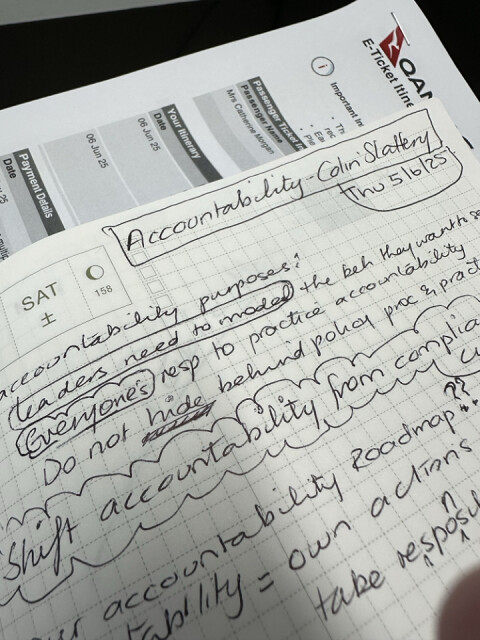 QAN
E-Ticket Itine
Important In
Passenger Ticket In
Passenger Name
Mrs Catherine Morgan
Your Itinerary
Date
06 Jun 25
06 Jun 25
Payment Details
Date
Accountability - Colin Slattery
Thu 5/6/25
SAT
±
158
accountability purposes:
Leaders need to model the beh they want to
Everyone's resp to practice accountability
Do not hide behind policy proc & pract
Shift accountability from complia
accountability Roadmap??
tability = own actions
take resposu
n